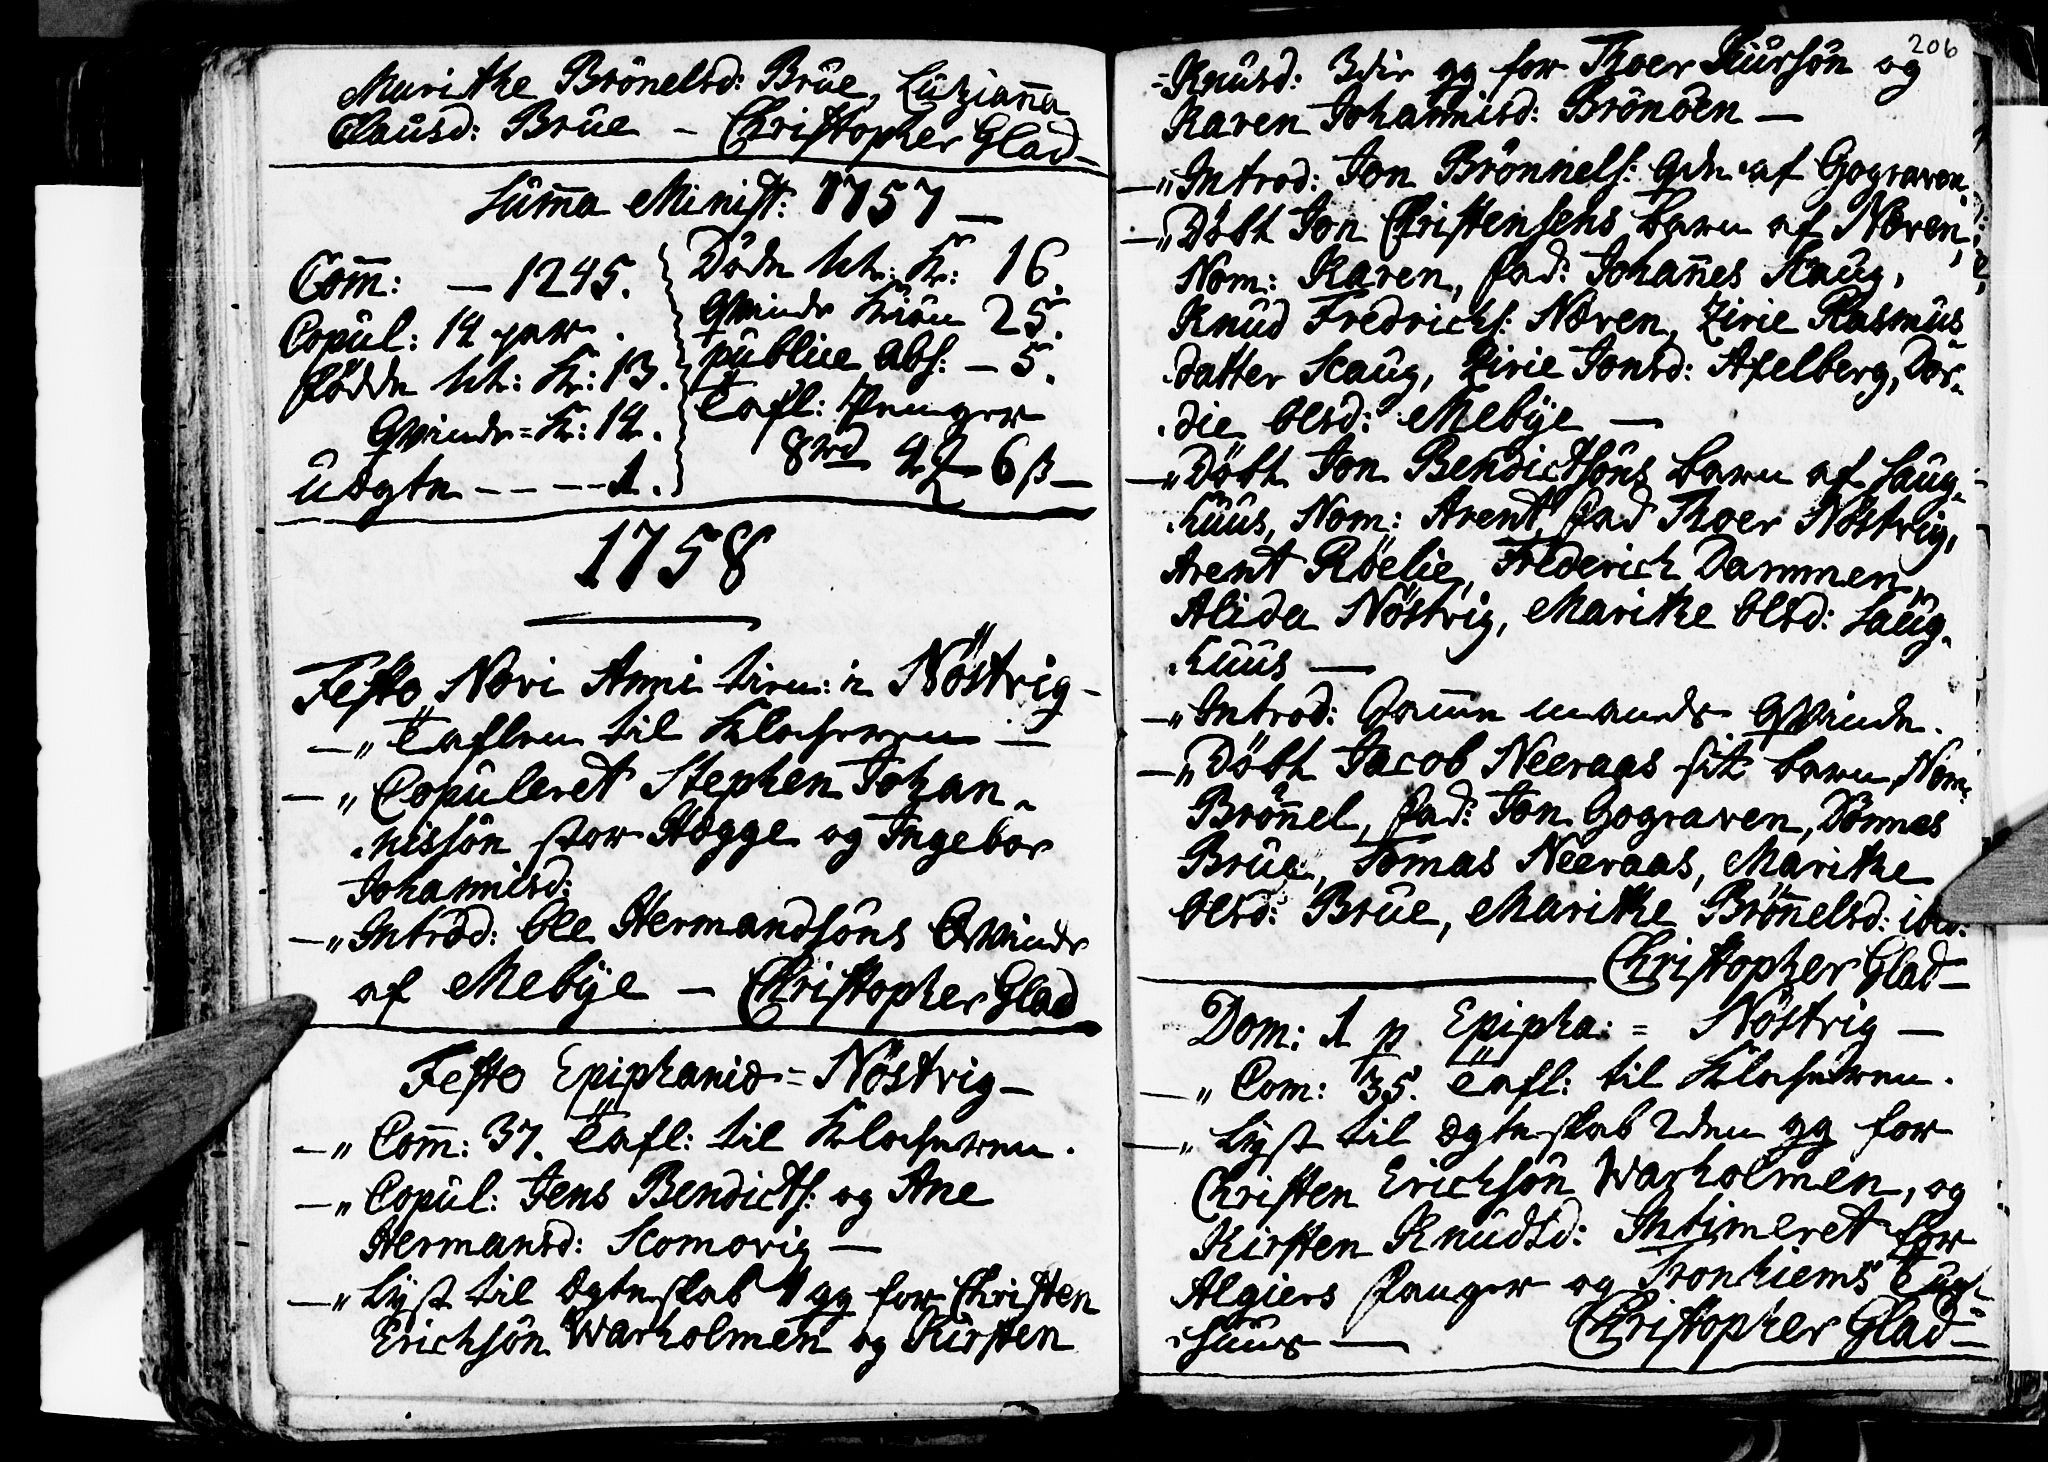 Marithe Brönelsd: Brüe, Lüzianna
Clausd: Brüe – Christopher Glad –
Summa Minist: 1757 –
Com̄: – 1245.
Copul: 14 par.
födde
Qvinde-K: 14.
Uægte - - - - 1.
Döde K: 16.
Qvinde Kiön 25.
publice abs: – 5.
Tafl: Penger
8 rd 4 6 ß –
1758
Festo Novi Anni Nöstrig –
– „ Taflen til Klocheren –
– „ Copuleret Stephen Johan-
nissön stor Hegge og Ingebor
Johannisd:
– „ Introd: Ole Hermandsöns Qvinde
af Mebÿe – Christopher Glad
Festo Epiphaniæ = Nöstrig –
– „ Com̄: 37. Tafl: til Klocheren.
– „ Copul: Jens Bendicts: og Ane
Hermansd: Scomovig –
– „ Lÿst til ægteskab 1 gg for Christen
Erichsön Warholmen og Kirsten
206
= Knusd: 3die gg for Thoer Siursön og
Karen Johannisd: Brönden –
– „ Introd: Jon Brönnels: Qvde af Gograven
– „ Döbt Jon Christensens barn af Næren,
Nom: Karen, fad: Johan̄es Scaug,
Knud Fredrichs: Næren, Zirie Rasmus
datter Scaug, Zirie Jonsd: Afelberg, Dor-
die Olsd: Mebÿe –
– „ Döbt Jon Bendictsöns barn af Saug-
huus, Nom: Arent, fad Thoer Nöstrig,
Arent Röelie, Frederich Dammen,
Alida Nöstrig, Marithe Olsd: Saug-
huus –
– „ Introd: Samme mands Qvinde.
– „ Döbt Jacob Neeraas sit barn, Nom:
Brön̄el, fad: Jon Gograven, Tönnes
Brüe, Tomas Neeraas, Marithe
Olsd: Brüe, Marithe Brön̄elsd: ibid:
Christopher Glad –
Dom: 1 p. Epipha: = Nöstrig –
– „ Com: 35. Tafl: til Klocheren.
– „ Lÿst til ægteskab 2den gg for
Christen Erichsön Warholmen, og
Kirsten Knudsd: Intimeret for
Algiers fanger og Tronhiems Tugt-
huus – Christopher Glad –